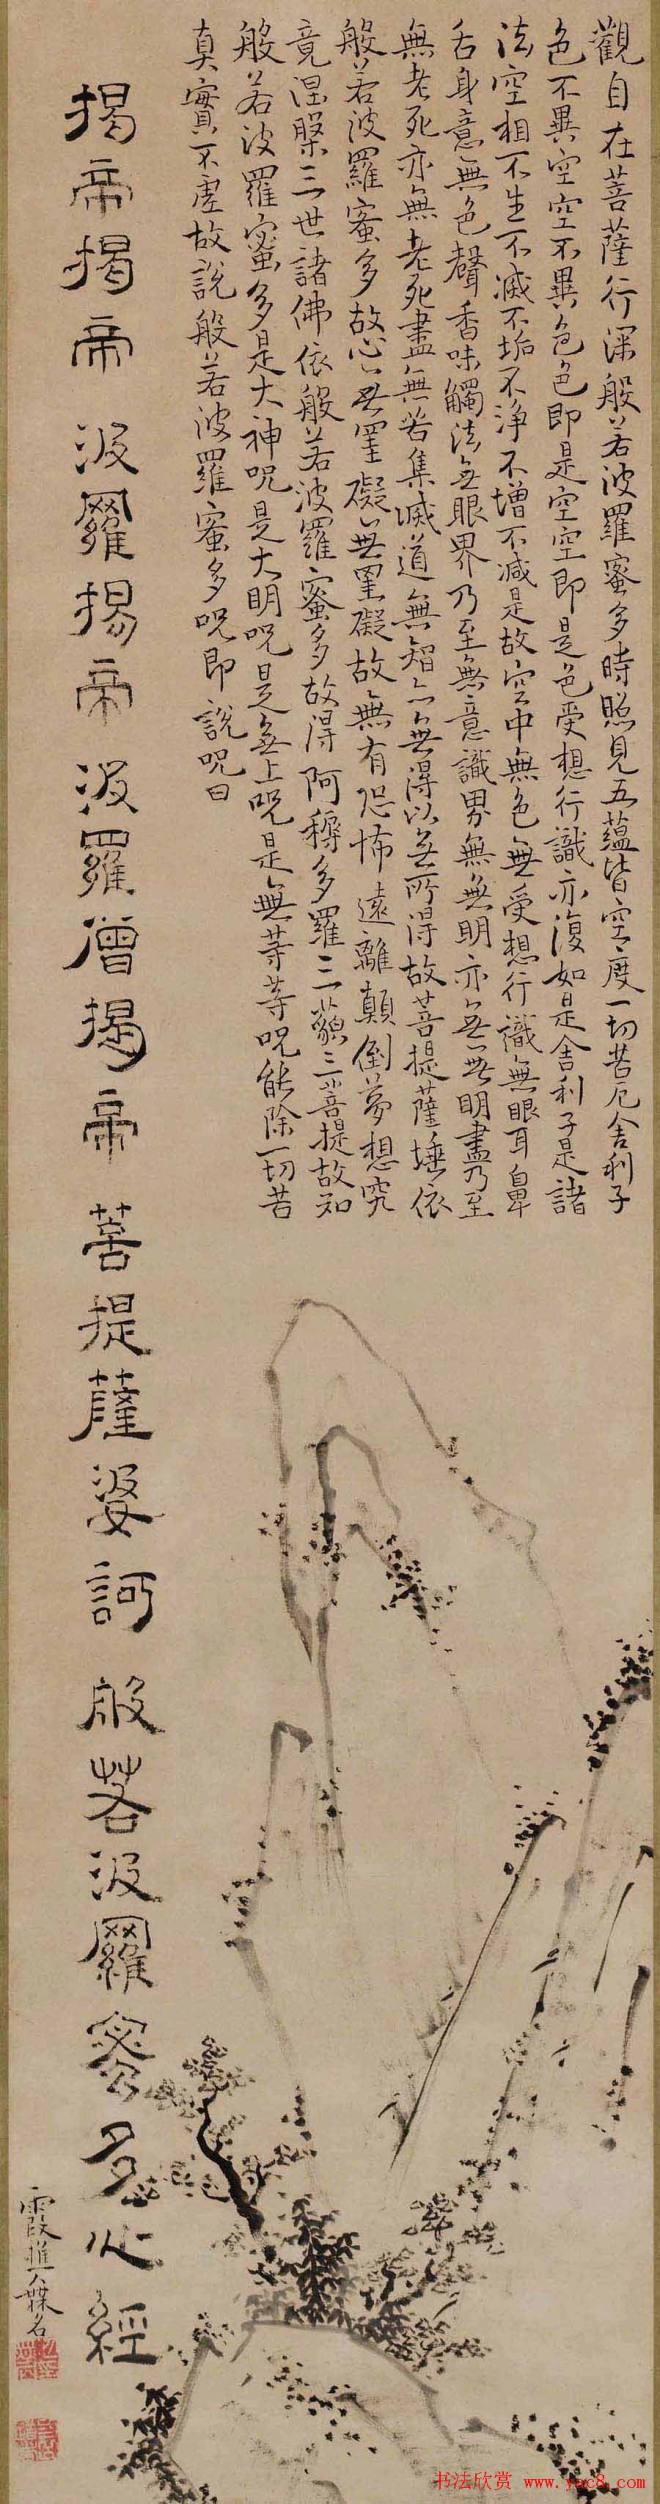 觀自在菩薩行深般若波羅蜜多時照見五蘊皆空度一切苦厄舍利子
色不異空空不異色色即是空空即是色受想行識亦復如是舍利子是諸
法空相不生不滅不垢不淨不增不減是故空中無色無受想行識無眼耳鼻
舌身意無色聲香味觸法無眼界乃至無意識界無無明亦無無明盡乃至
無老死亦無老死盡無苦集滅道無智亦無得以無所得故菩提薩埵依
般若波羅蜜多故心無罣礙無罣礙故無有恐怖遠離顛倒夢想究
竟涅槃三世諸佛依般若波羅蜜多故得阿耨多羅三藐三菩提故知
般若波羅蜜多是大神呪是大明呪是無上呪是無等等呪能除一切苦
真實不虛故說般若波羅蜜多呪即說呪曰
揭帝揭帝 波羅揭帝 波羅僧揭帝 菩提薩婆訶 般若波羅蜜多心經
霞樵人
书法欣赏 www.yac8.com